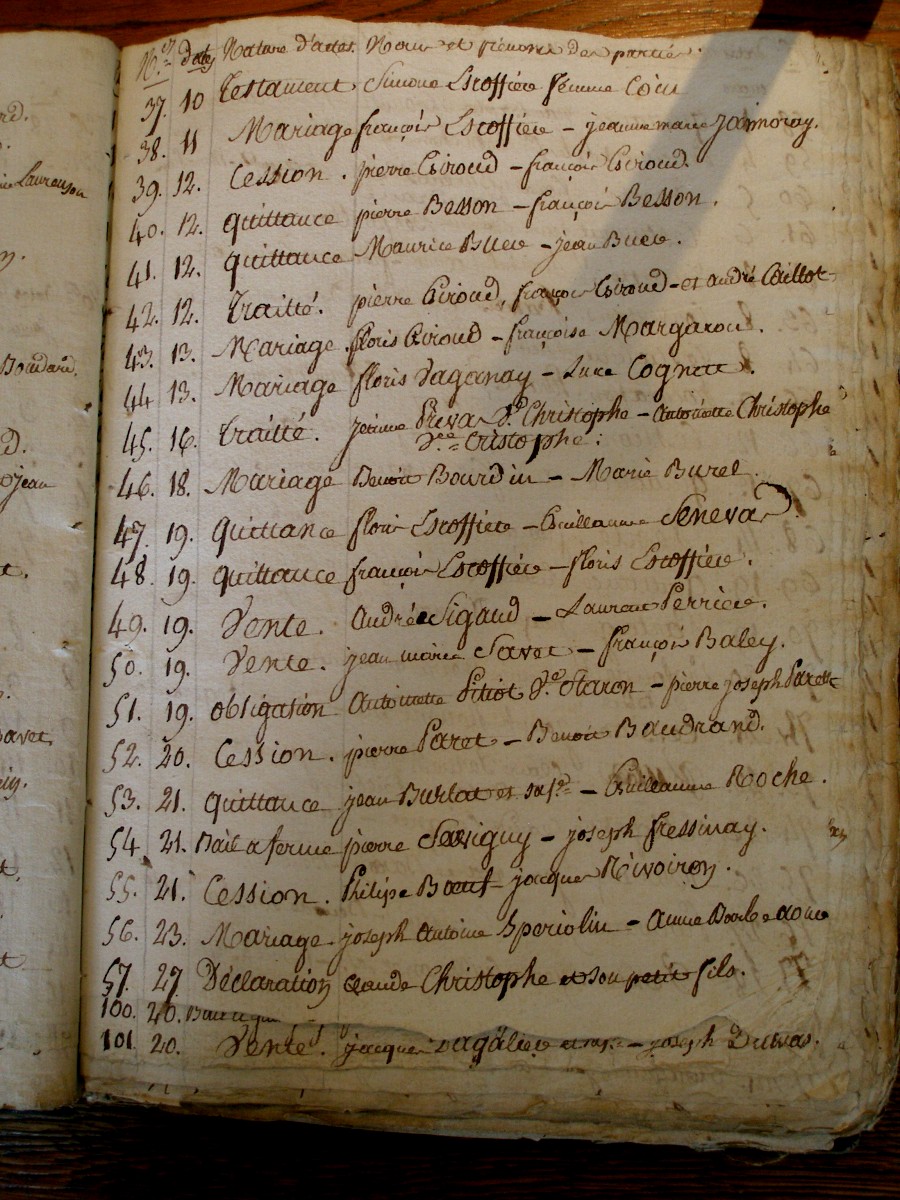 rd.
Laurenson
Bourdard.
d.
Jean
avet
N.os dates Nature d'actes. Noms et prénoms des parties.
37. 10 Testament. Simone Escoffière femme
38. 11 Mariage françois Escoffière – jeanne marie
39. 12. Cession. pierre Giroud – françois Giroud.
40. 12. Quittance pierre Besson – françois Besson.
41. 12. Quittance Maurice – jean
42. 12. Traitté. pierre Giroud, françois Giroud – et andré Caillot
43. 13. Mariage. floris Giroud – françoise Margaron.
44 13. Mariage floris Daganay – Luce Cognett.
45. 16. Traitté. Christophe – Antoinette Christophe
Cristophe.
46. 18. Mariage Benoit Bourdin – Marie Burel.
47. 19. Quittance floris Escoffière – Guillaume Seneva
48. 19. Quittance françois Escoffière – floris Escoffière.
49. 19. Vente. André Sigaud – Laurent Perrière.
50. 19. Vente. jean marie Savet – françois Baley.
51. 19. obligation Antoinette Pitiot V.e Staron – pierre joseph Parett
52. 20. Cession. pierre Paret – Benoit Baudrand.
53. 21. Quittance jean Burlat et sa f.e – Guillaume Roche.
54 21. Bail a ferme pierre Savigny – joseph fressinay.
55. 21. Cession. Philipe Bœuf – jacques Rivoiron.
56. 23. Mariage joseph Antoine Speriolin – anne
57. 27 Déclaration Claude Christophe et son petit fils.
100. 20.
101 20. Vente. jacques et sa – joseph Dumas.